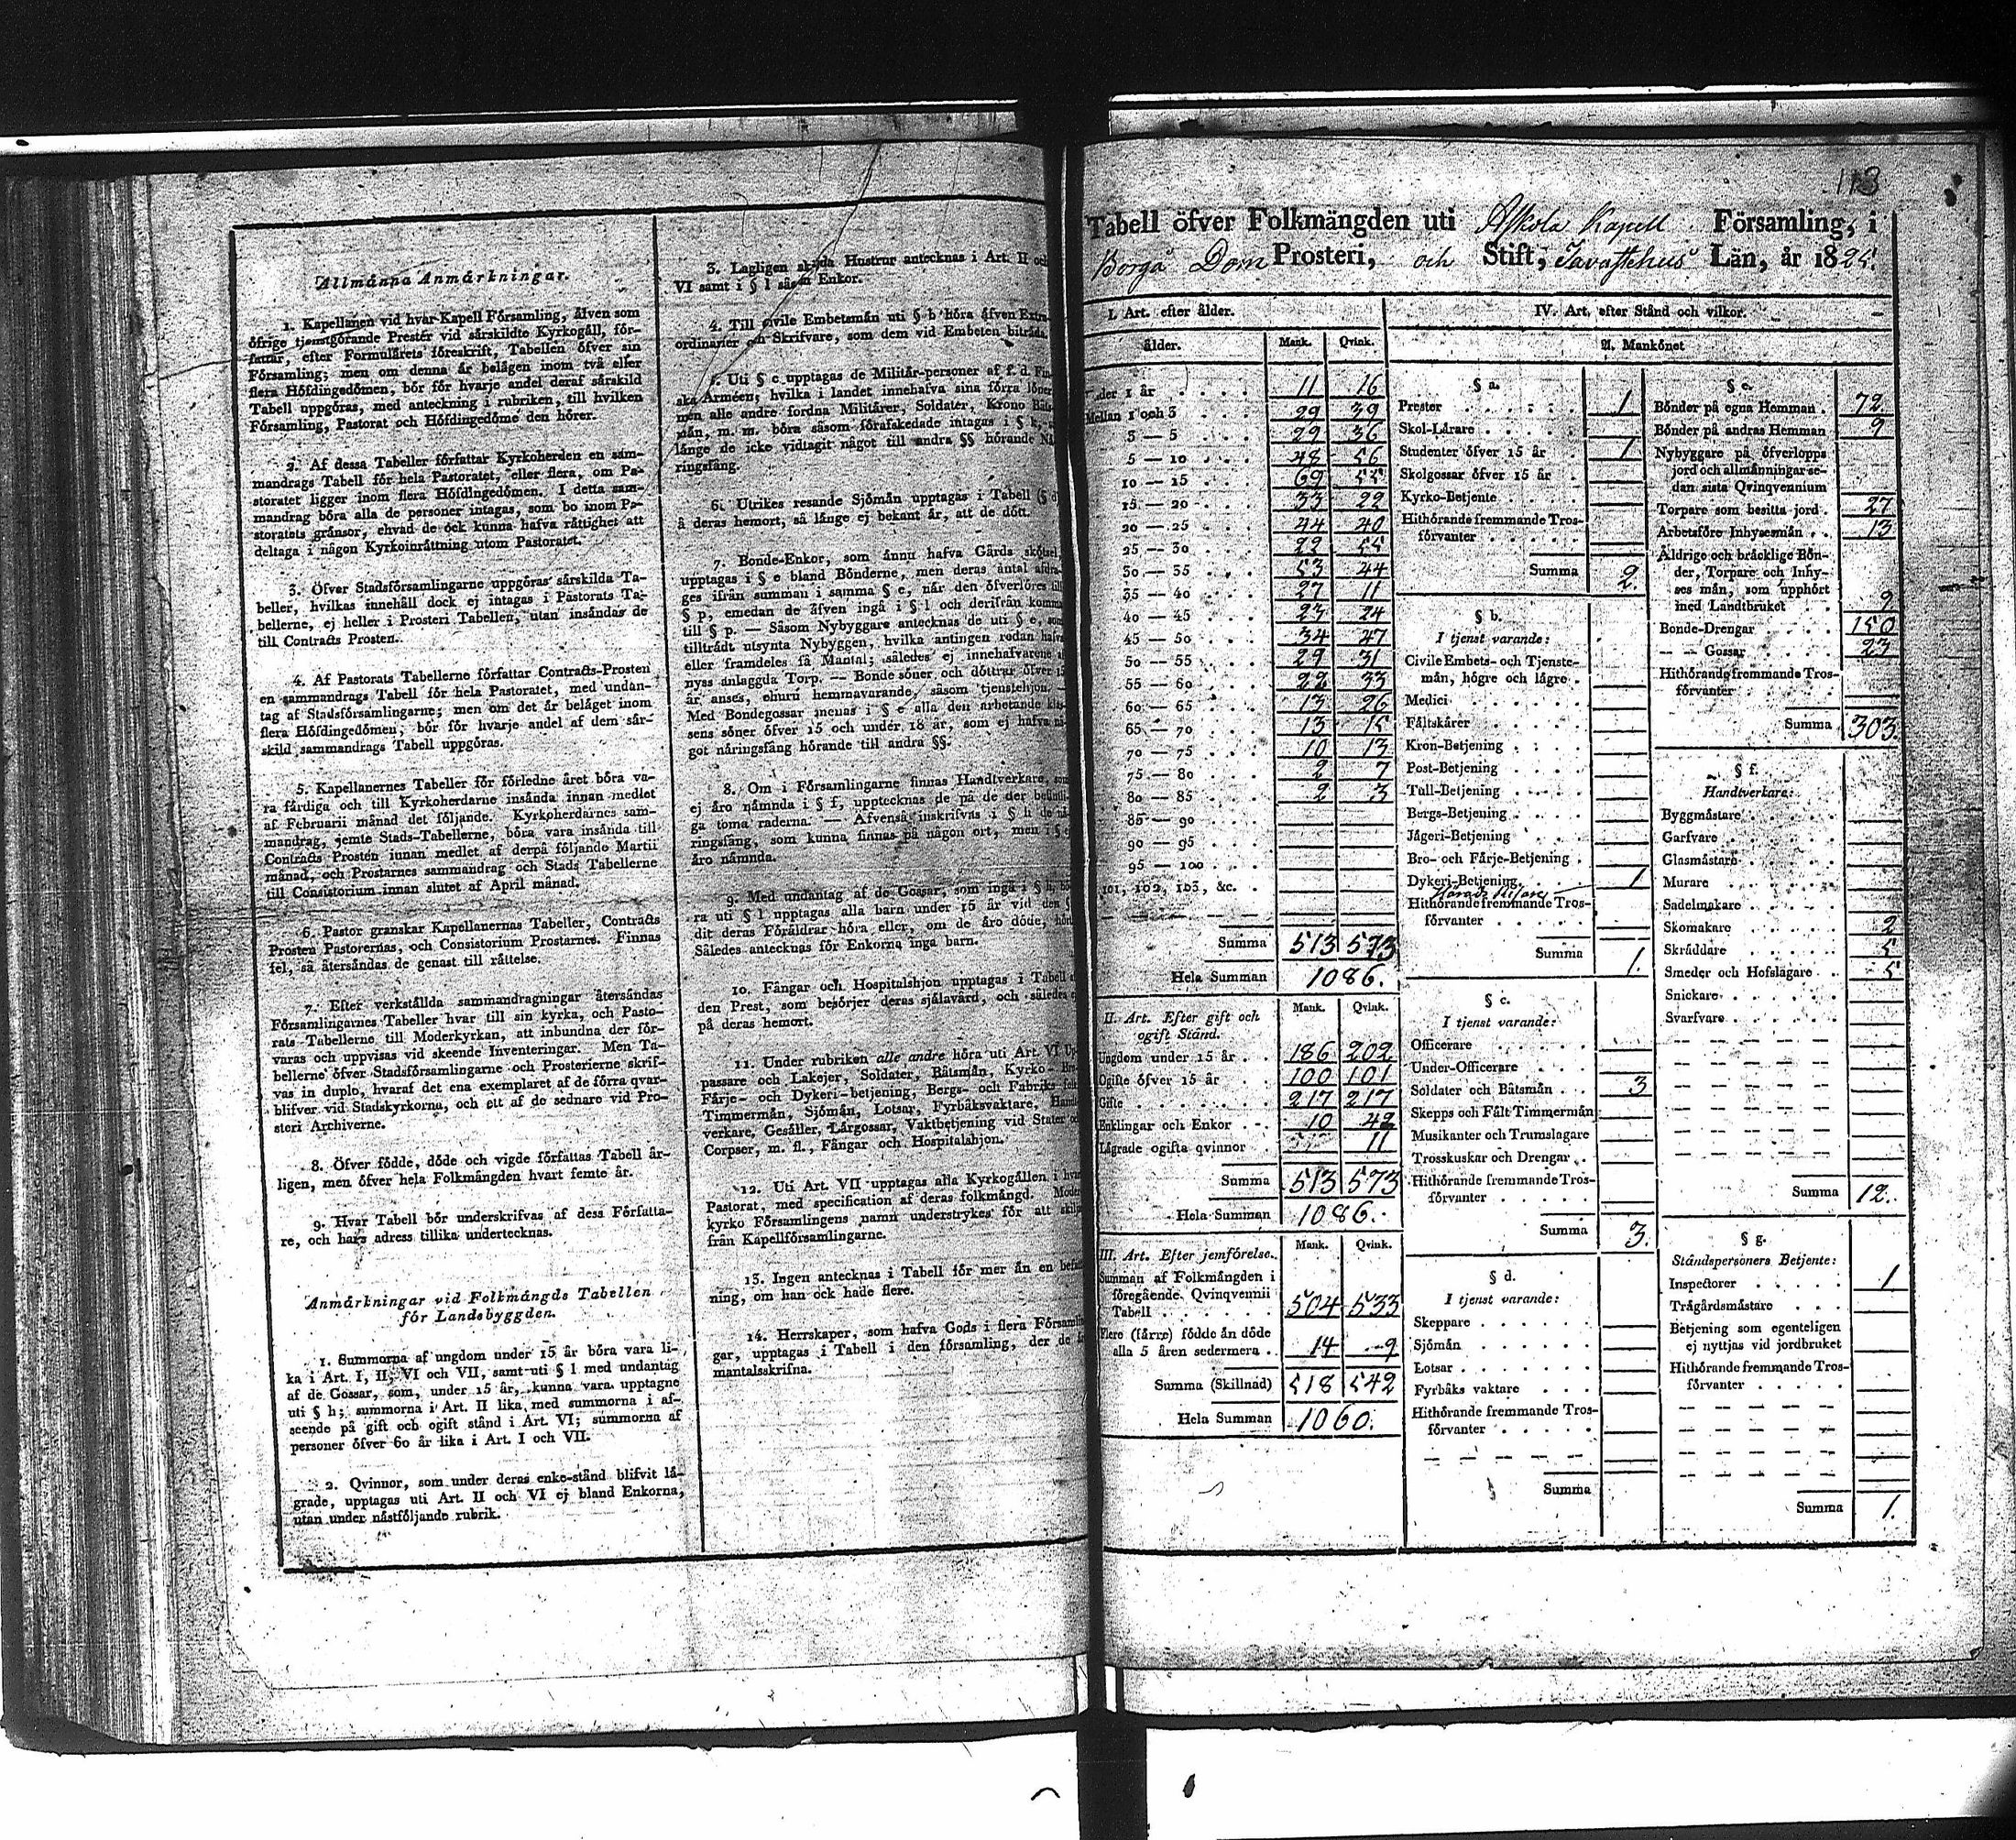 Allmänna Anmärkningar.
1. Kapellanen vid hvar Kapell Församling, äfven som
öfrige tjenstgörande Prester vid särskildte Kyrkogäll, för-
fattar, efter Formulärets föreskrift, Tabellen öfver sin
Församling; men om denna är belägen inom två eller
flera Höfdingedömen, bör för hvarje andel deraf särskild
Tabell uppgöras, med anteckning i rubriken, till hvilken
Församling, Pastorat och Höfdingedöme den hörer.
2. Af dessa Tabeller författar Kyrkoherden en sam-
mandrags Tabell för hela Pastoratet, eller flera, om Pa-
storatet ligger inom flera Höfdingedömen. I detta sam-
mandrag böra alla de personer intagas, som bo inom Pa-
storatets gränsor, ehvad de ock kunna hafva rättighet att
deltaga i någon Kyrkoinrättning utom Pastoratet.
3. Öfver Stadsförsamlingarne uppgöras särskilda Ta-
beller, hvilkas innehåll dock ej intagas i Pastorats Ta-
bellerne, ej heller i Prosteri Tabellen, utan insändas de
till Contracts Prosten.
4. Af Pastorats Tabellerne författar Contracts-Prosten
en sammandrags Tabell för hela Pastoratet, med undan-
tag af Stadsförsamlingarne; men om det är beläget inom
flera Höfdingedömen, bör för hvarje andel af dem sär-
skild sammandrags Tabell uppgöras.
5. Kapellanernes Tabeller för förledne året böra va-
ra färdiga och till Kyrkoherdarne insända innan medlet
af Februarii månad det följande. Kyrkoherdarnes sam-
mandrag, jemte Stads-Tabellerne, böra vara insända till
Contracts Prosten innan medlet af derpå följande Martii
månad, och Prostarnes sammandrag och Stads Tabellerne
till Consistorium innan slutet af April månad.
6. Pastor granskar Kapellanernas Tabeller, Contracts
Prosten Pastorernas, och Consistorium Prostarnes. Finnas
fel, så återsändas de genast till rättelse.
7. Efter verkställda sammandragningar återsändas
Församlingarnes Tabeller hvar till sin kyrka, och Pasto-
rats Tabellerne till Moderkyrkan, att inbundna der för-
varas och uppvisas vid skeende Inventeringar. Men Ta-
bellerne öfver Stadsförsamlingarne och Prosterierne skrif-
vas in duplo, hvaraf det ena exemplaret af de förra qvar-
blifver vid Stadskyrkorna, och ett af de sednare vid Pro-
steri Archiverne.
8. Öfver födde, döde och vigde författas Tabell år-
ligen, men öfver hela Folkmängden hvart femte år.
9. Hvar Tabell bör underskrifvas af dess Författa-
re, och hans adress tillika undertecknas.
Anmärkningar vid Folkmängds Tabellen
för Landsbyggden.
1. Summorna af ungdom under 15 år böra vara li-
ka i Art. I, II, VI och VII, samt uti § l med undantag
af de Gossar, som, under 15 år, kunna vara upptagne
uti § h; summorna i Art. II lika med summorna i af-
seende på gift och ogift stånd i Art. VI; summorna af
personer öfver 60 år lika i Art. I och VII.
2. Qvinnor, som under deras enke-stånd blifvit lä-
grade, upptagas uti Art. II och VI ej bland Enkorna,
utan under nästföljande rubrik.
3. Lagligen skilda Hustrur antecknas i Art. II och
VI samt i § l såsom Enkor.
4. Till civile Embetsmän uti § b höra äfven Extra-
ordinarier och Skrifvare, som dem vid Embeten biträda.
5. Uti § c upptagas de Militär-personer af f. d. Fin-
ska Arméen, hvilka i landet innehafva sina förra löner
men alle andre fordna Militärer, Soldater, Krono Båts-
män, m. m. böra såsom förafskedade intagas i § k, så
länge de icke vidtagit något till andra §§ hörande Nä-
ringsfång.
6. Utrikes resande Sjömän upptagas i Tabell (§ d)
å deras hemort, så länge ej bekant är, att de dött.
7. Bonde-Enkor, som ännu hafva Gårds skötsel,
upptagas i § e bland Bönderne, men deras antal afdra-
ges ifrån summan i samma § e, när den öfverföres till
§ p, emedan de äfven ingå i § l och derifrån komma
till § p. — Såsom Nybyggare antecknas de uti § e, som
tillträdt utsynta Nybyggen, hvilka antingen redan hafva
eller framdeles få Mantal; således ej innehafvarene af
nyss anlaggda Torp. — Bonde söner och döttrar öfver 15
år anses, ehuru hemmavarande, såsom tjenstehjon. —
Med Bondegossar menas i § e alla den arbetande klas-
sens söner öfver 15 och under 18 år, som ej hafva nå-
got näringsfång hörande till andra §§.
8. Om i Församlingarne finnas Handtverkare, som
ej äro nämnda i § f, upptecknas de på de der befintli-
ga toma raderna. — Äfvenså inskrifvas i § h de nä-
ringsfång, som kunna finnas på någon ort, men i § e
äro nämnda.
9. Med undantag af de Gossar, som ingå i § h, bö-
ra uti § l upptagas alla barn under 15 år vid den §
dit deras Föräldrar höra eller, om de äro döde, hört
Således antecknas för Enkorna inga barn.
10. Fångar och Hospitalshjon upptagas i Tabell af
den Prest, som besörjer deras själavård, och således ej
på deras hemort.
11. Under rubriken alle andre höra uti Art. VI Up-
passare och Lakejer, Soldater, Båtsmän, Kyrko- Bro-
Färje- och Dykeri-betjening, Bergs- och Fabriks folk
Timmermän, Sjömän, Lotsar, Fyrbåksvaktare, Handt-
verkare, Gesäller, Lärgossar, Vaktbetjening vid Stater och
Corpser, m. fl., Fångar och Hospitalshjon.
12. Uti Art. VII upptagas alla Kyrkogällen i hvart
Pastorat, med specification af deras folkmängd. Moder-
kyrko Församlingens namn understrykes för att skilja
från Kapellförsamlingarne.
13. Ingen antecknas i Tabell för mer än en befatt-
ning, om han ock hade flere.
14. Herrskaper, som hafva Gods i flera Församlin-
gar, upptagas i Tabell i den församling, der de äro
mantalsskrifna.
113
Tabell öfver Folkmängden uti Askola Kapell Församling, i
Borgå Dom Prosteri, och Stift, Tavastehus Län, år 1825.
I. Art. efter ålder.
ålder. Mank. Qvink.
Under 1 år 11 16
Mellan 1 och 3 29 39
3 — 5 29 36
5 — 10 48 56
10 — 15 69 55
15 — 20 33 22
20 — 25 44 40
25 — 30 22 55
30 — 35 53 44
35 — 40 27 11
40 — 45 23 24
45 — 50 34 47
50 — 55 29 31
55 — 60 22 33
60 — 65 13 26
65 — 70 13 15
70 — 75 10 13
75 — 80 2 7
80 — 85 2 3
85 — 90
90 — 95
95 — 100
101, 102, 103, &c.
Summa 513 573
Hela Summan 1086.
II. Art. Efter gift och
ogift Stånd. Mank. Qvink.
Ungdom under 15 år 186 202
Ogifte öfver 15 år 100 101
Gifte 217 217
Enklingar och Enkor 10 42
Lägrade ogifta qvinnor 11
Summa 513 573
Hela Summan 1086.
III. Art. Efter jemförelse. Mank. Qvink.
Summan af Folkmängden i
föregående Qvinqvennii
Tabell 504 533
Flere (färre) födde än döde
alla 5 åren sedermera 14 9
Summa (Skillnad) 518 542
Hela Summan 1060.
IV. Art. efter Stånd och vilkor.
A. Mankönet
§ a.
Prester 1
Skol-Lärare
Studenter öfver 15 år 1
Skolgossar öfver 15 år
Kyrko-Betjente
Hithörande fremmande Tros-
förvanter
Summa 2.
§ b.
I tjenst varande:
Civile Embets- och Tjenste-
män, högre och lägre
Medici
Fältskärer
Kron-Betjening
Post-Betjening
Tull-Betjening
Bergs-Betjening
Jägeri-Betjening
Bro- och Färje-Betjening
Dykeri-Betjening 1
Hithörande fremmande Tros-
förvanter
Summa 1.
§ c.
I tjenst varande:
Officerare
Under-Officerare
Soldater och Båtsmän 3
Skepps och Fält Timmermän
Musikanter och Trumslagare
Trosskuskar och Drengar
Hithörande fremmande Tros-
förvanter
Summa 3.
§ d.
I tjenst varande:
Skeppare
Sjömän
Lotsar
Fyrbåks vaktare
Hithörande fremmande Tros-
förvanter
Summa
§ e.
Bönder på egna Hemman 72
Bönder på andras Hemman 9
Nybyggare på öfverlopps
jord och allmänningar se-
dan sista Qvinqvennium
Torpare som besitta jord 27
Arbetsföre Inhysesmän 13
Äldrige och bräcklige Bön-
der, Torpare och Inhy-
ses män, som upphört
med Landtbruket 9
Bonde-Drengar 150
— — Gossar 23
Hithörande fremmande Tros-
förvanter
Summa 303.
§ f.
Handtverkare:
Byggmästare
Garfvare
Glasmästare
Murare
Sadelmakare
Skomakare 2
Skräddare 5
Smeder och Hofslagare 5
Snickare
Svarfvare
Summa 12.
§ g.
Ståndspersoners Betjente:
Inspectorer 1
Trägårdsmästare
Betjening som egenteligen
ej nyttjas vid jordbruket
Hithörande fremmande Tros-
förvanter
Summa 1.